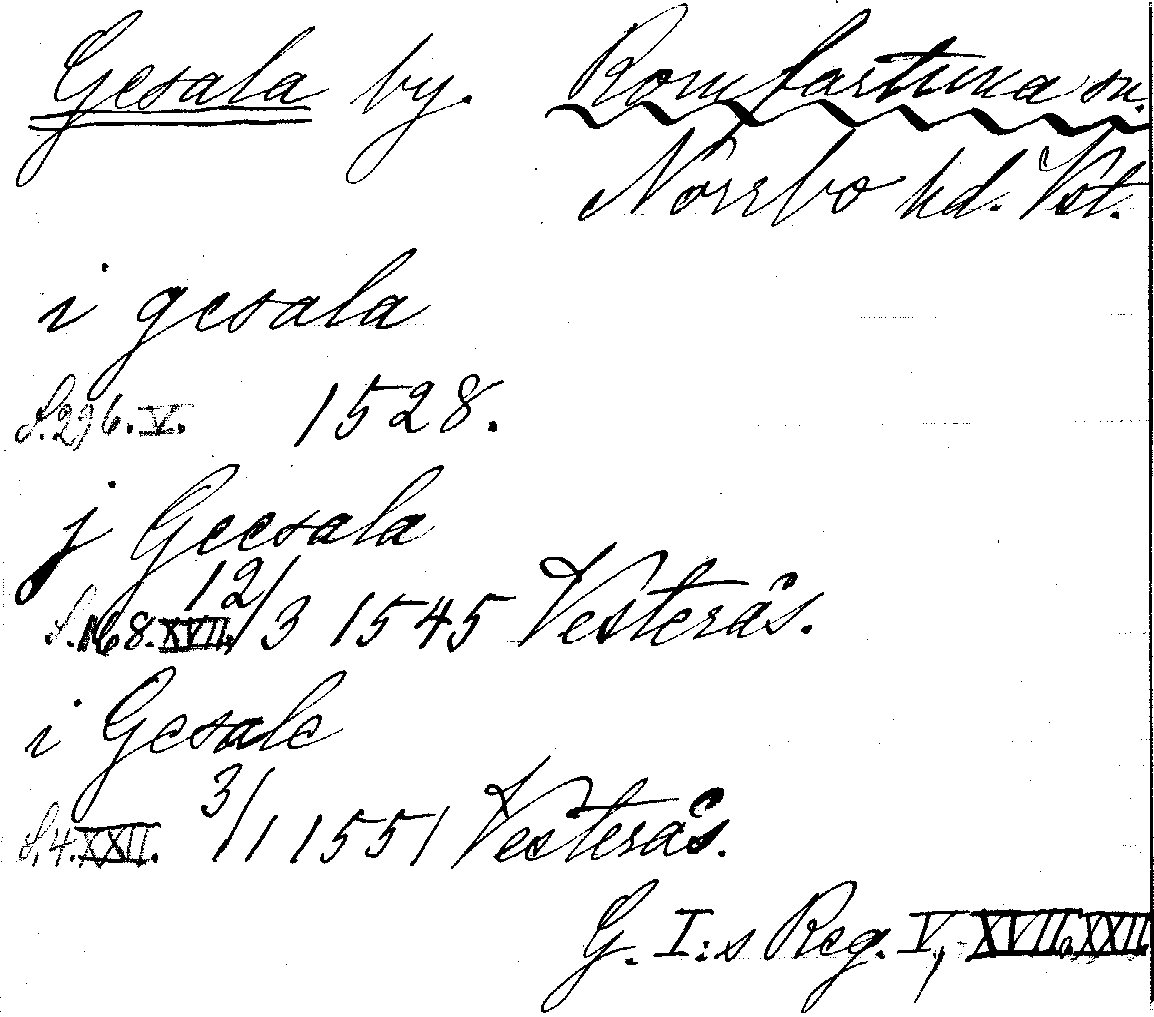 Gesala by. Romfartuna sn.
Norrbo hd. Vst.
i gesala
S. 296. V. 1528.
j Geesala
S. 168. XVII. 12/3 1545 Vesterås.
i Gesale
S. 4. XXII. 3/1 1551 Vesterås.
G. I:s Reg. V, XVII, XXII.